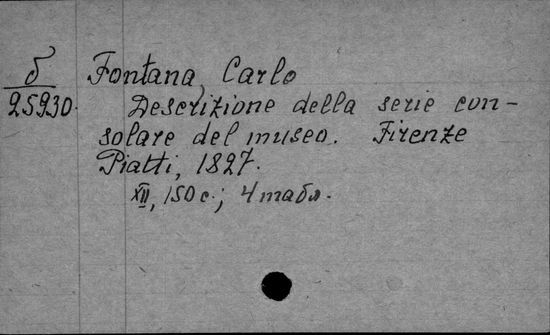 б Fontana, Carlo
25930. Descrizione della serie con-
solare del museo. Firenze
Piatti, 1827.
XII, 150 с.; 4 табл.